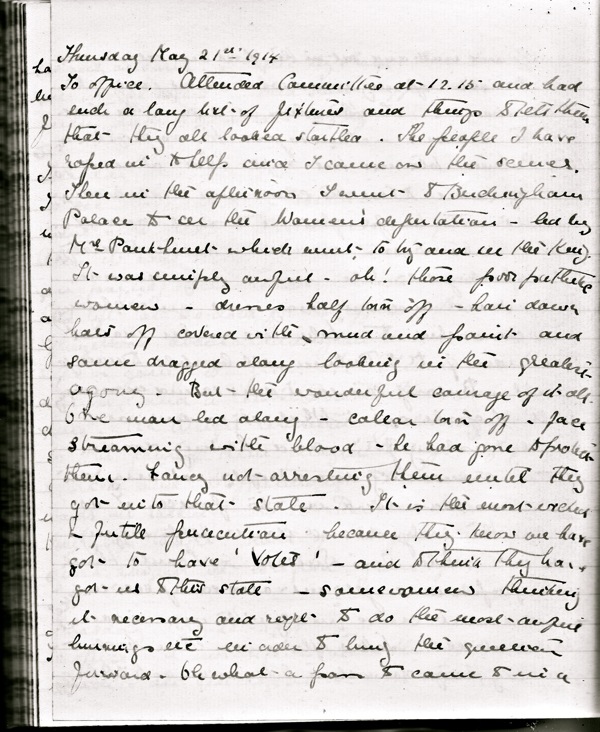 Thursday May 21st 1914
To office. Attended Committee at 12.15 and had
such a long list of fixtures and things to tell them
that they all looked startled. The people I have
roped in to help and I came on the scenes.
Then in the afternoon I went to Buckingham
Palace to see the Women's deputation - led by
Mrs Pankhurst which went to try and see the King.
It was simply awful - oh! those poor pathetic
women - dresses half torn off - hair down
hats off covered with mud and paint and
some dragged along looking in the greatest
agony. But the wonderful courage of it all.
One man led along - collar torn off - face
streaming with blood - he had gone to protect
them. Fancy not arresting them until they
got into that state. It is the most wicked
& futile persecution because they know we have
got to have 'Votes' - and to think they have
got us to this state - some women thinking
it necessary and right to do the most awful
burnings etc in order to bring the question
forward. Oh what a pass to come to in a